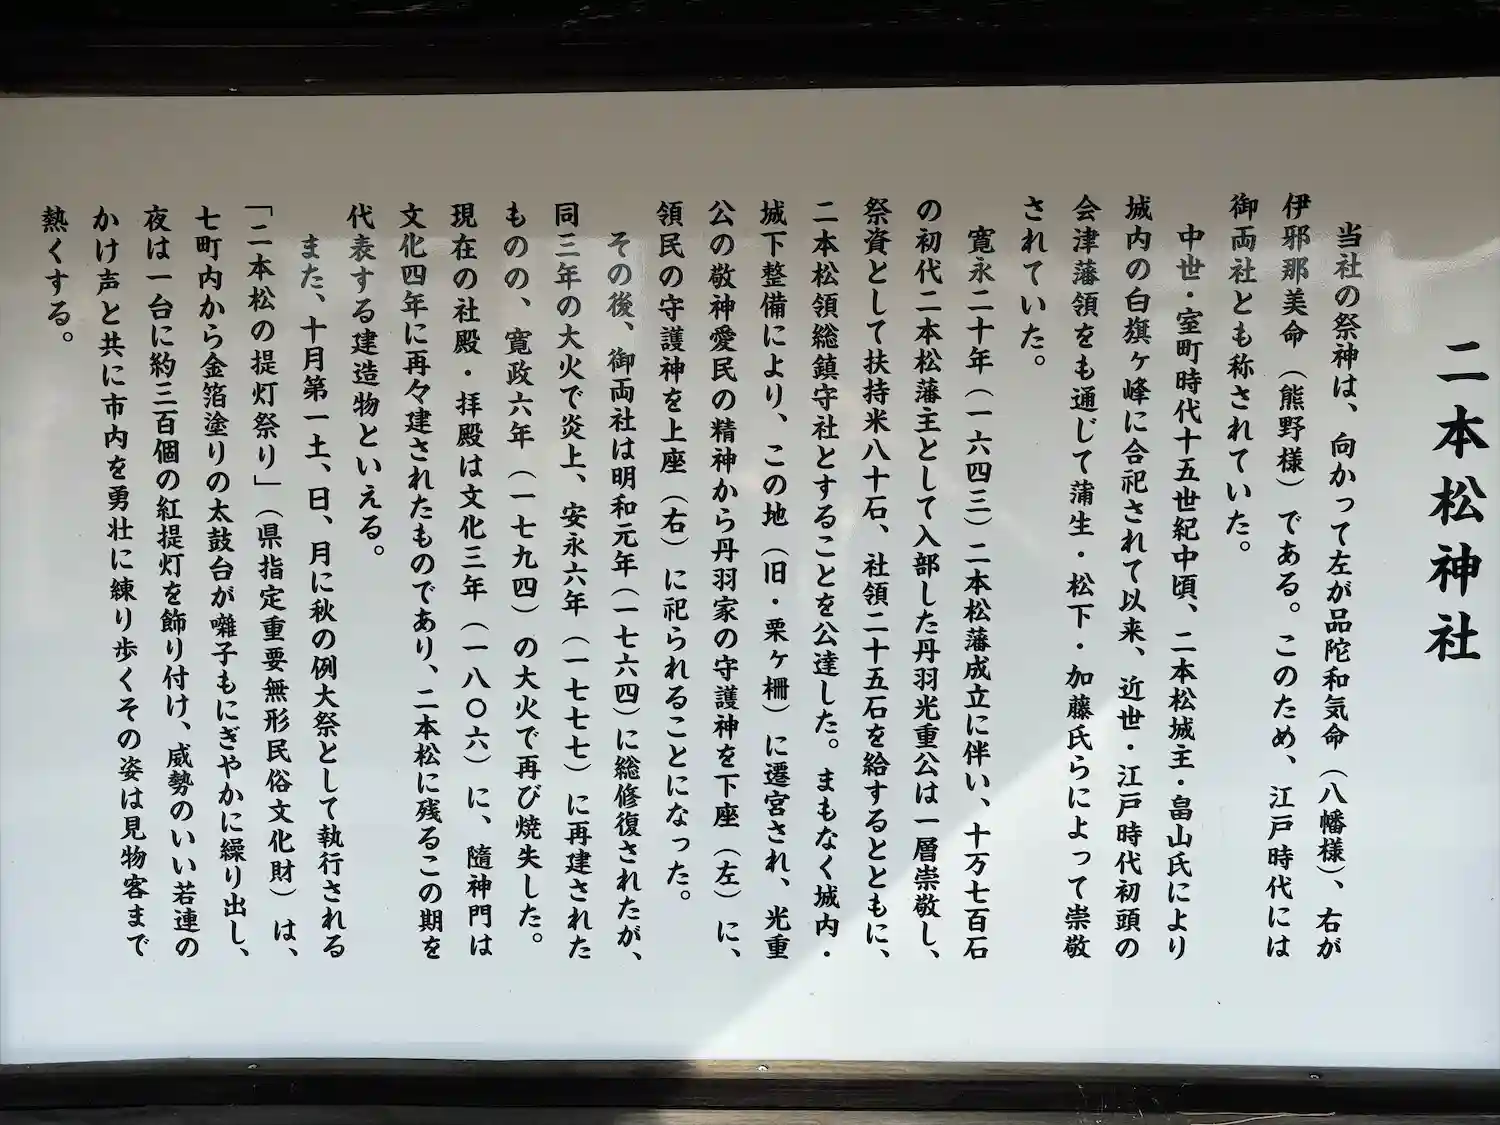 二本松神社
当社の祭神は、向かって左が品陀和気命（八幡様）、右が
伊邪那美命（熊野様）である。このため、江戸時代には
御両社とも称されていた。
中世・室町時代十五世紀中頃、二本松城主・畠山氏により
城内の白旗ヶ峰に合祀されて以来、近世・江戸時代初頭の
会津藩領をも通じて蒲生・松下・加藤氏らによって崇敬
されていた。
寛永二十年（一六四三）二本松藩成立に伴い、十万七百石
の初代二本松藩主として入部した丹羽光重公は一層崇敬し、
祭資として扶持米八十石、社領二十五石を給するとともに、
二本松領総鎮守社とすることを公達した。まもなく城内・
城下整備により、この地（旧・栗ヶ柵）に遷宮され、光重
公の敬神愛民の精神から丹羽家の守護神を下座（左）に、
領民の守護神を上座（右）に祀られることになった。
その後、御両社は明和元年（一七六四）に総修復されたが、
同三年の大火で炎上、安永六年（一七七七）に再建された
ものの、寛政六年（一七九四）の大火で再び焼失した。
現在の社殿・拝殿は文化三年（一八〇六）に、隨神門は
文化四年に再々建されたものであり、二本松に残るこの期を
代表する建造物といえる。
また、十月第一土、日、月に秋の例大祭として執行される
「二本松の提灯祭り」（県指定重要無形民俗文化財）は、
七町内から金箔塗りの太鼓台が囃子もにぎやかに繰り出し、
夜は一台に約三百個の紅提灯を飾り付け、威勢のいい若連の
かけ声と共に市内を勇壮に練り歩くその姿は見物客まで
熱くする。